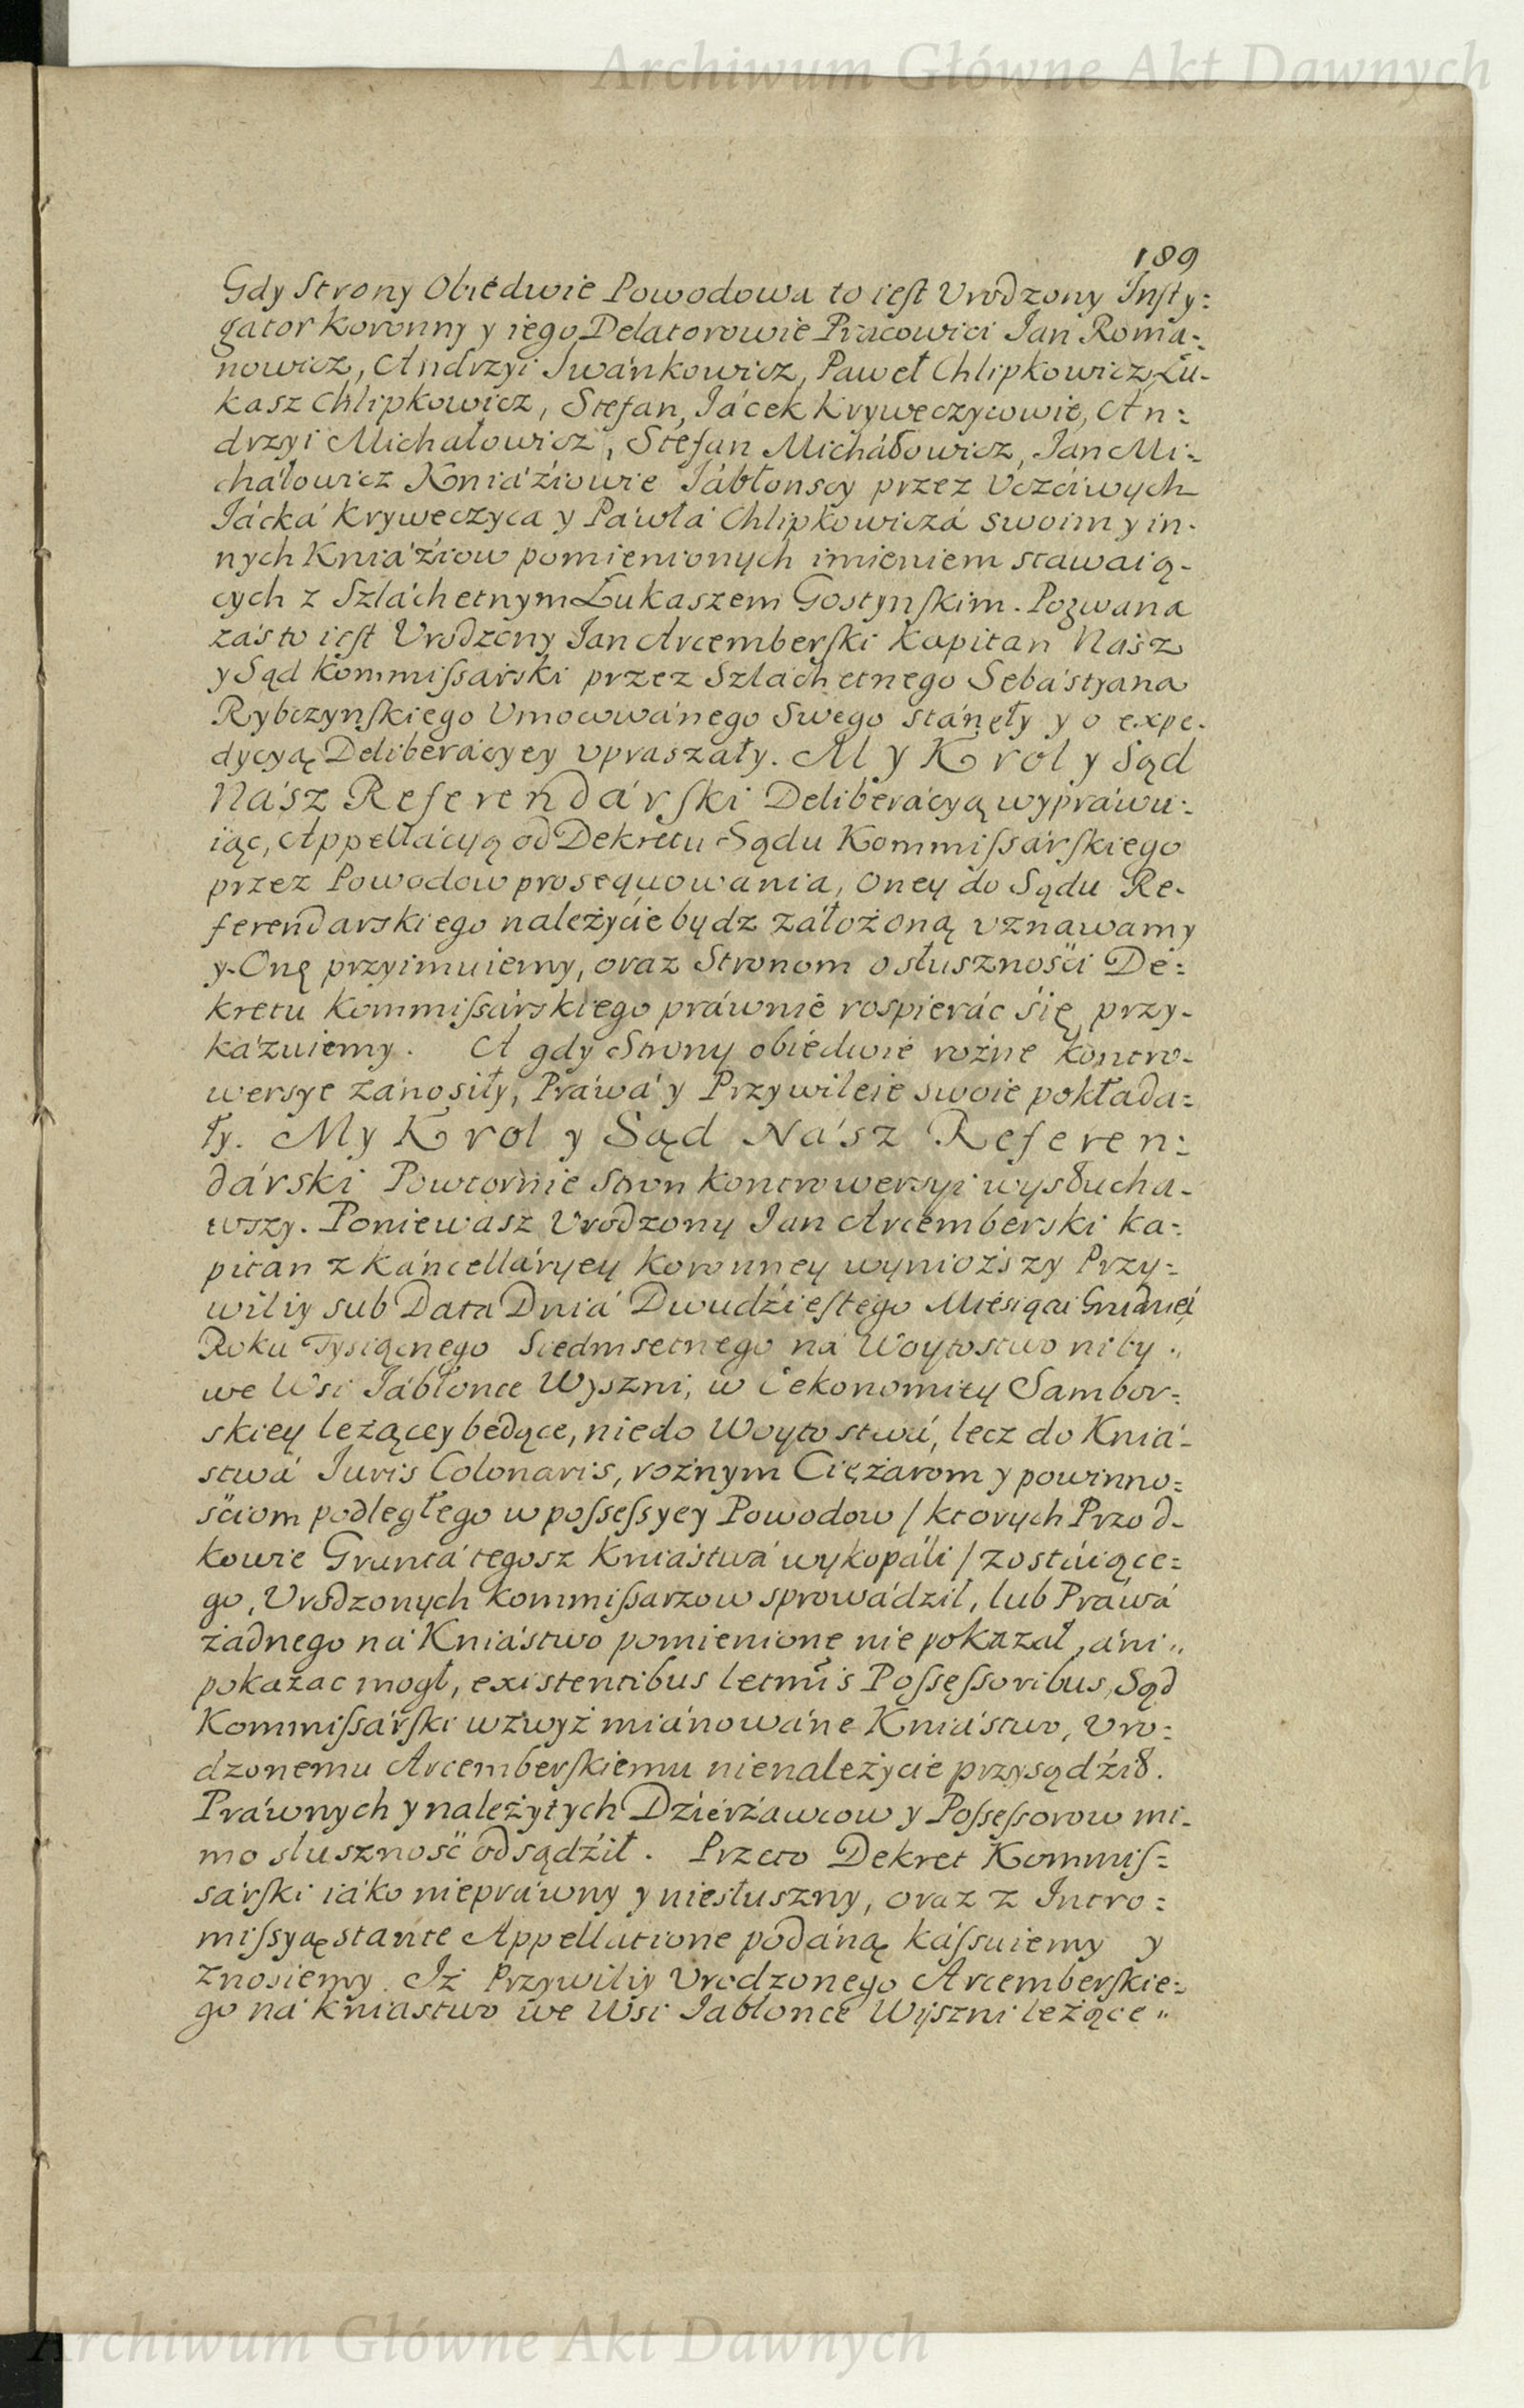 Archiwum Główne Akt Dawnych
189
Gdy Strony Obiedwie Powodowa to iest Vrodzony Insty:
gator Koronny y iego Delatorowie Pracowici Jan Roma:
nowicz, Andrzyi Iwánkowicz, Paweł Chlipkowicz Łu-
kasz Chlipkowicz, Stefan, Jácek Kryweczycowie, An:
drzyi Michałowicz, Stefan Micháłowicz, Jan Mi:
cháłowicz Kniáźiowie Jábłonscy przez Vczciwych
Jácká Kryweczyca y Páwłá Chlipkowiczá swoim y in-
nych Kniáźiow pomienionych imieniem stawaią-
cych z Szláchetnym Łukaszem Gostynskim. Pozwana
zás to iest Vrodzony Jan Arcemberski Kapitan Nász
y Sąd Kommissárski przez Szlachetnego Sebástyana
Rybczynskiego Umocowánego Swego stánęły y o expe-
dycyą Deliberácyey vpraszały. My Krol y Sąd
Nász Referendárski Deliberácyą wypráwu:
iąc, Appellácyą od Dekretu Sądu Kommissárskiego
przez Powodow prosequowania, Oney do Sądu Re-
ferendarskiego należycie bydz záłożoną vznawamy
y Onę przyimuiemy, oraz Stronom o słusznośći De:
kretu Kommissárskiego práwnie rospieráć się przy-
kázuiemy. A gdy Strony obiedwie rożne kontro-
wersye zánosiły, Práwá y Przywileie swoie pokłada:
ły. My Krol y Sąd Nász Referen:
dárski Powtornie Stron kontrowersyi wysłucha-
wszy. Poniewasz Vrodzony Jan Arcemberski Ka:
pitan z Káncelláryey Koronney wynioższy Przy:
wiliy sub Data Dniá Dwudźiestego Miesiąca Grudnia
Roku Tysiącnego Siedmsetnego ná Woytostwo niby
we Wsi Jábłonce Wyszni, w Oekonomiey Sambor:
skiey leżącey będące, nie do Woytostwá, lecz do Kniá-
stwá Juris Colonaris, rożnym Ciężarom y powinno:
śćiom podległego w possessyey Powodow / ktorych Przod-
kowie Gruntá tegosz Kniástwá wykopáli / zostáiące:
go, Vrodzonych Kommissarzow sprowádzil, lub Práwá
żadnego ná Kniástwo pomienione nie pokazał, áni
pokazac mogł, existentibus letmis Possessoribus, Sąd
Kommissárski wzwyż miánowáne Kniástwo, Vro:
dzonemu Arcemberskiemu nienależycie przysądźił.
Práwnych y należytych Dzierżáwcow y Possessorow mi-
mo sluszność odsądźił. Przeto Dekret Kommis:
sárski iáko niepráwny y niesłuszny, oraz z Intro:
missyą stante Appellatione podáną kássuiemy y
znosiemy. Iż Przywiliy Vrodzonego Arcemberskie:
go ná Kniastwo we Wsi Jablonce Wyszni leżące
Archiwum Główne Akt Dawnych